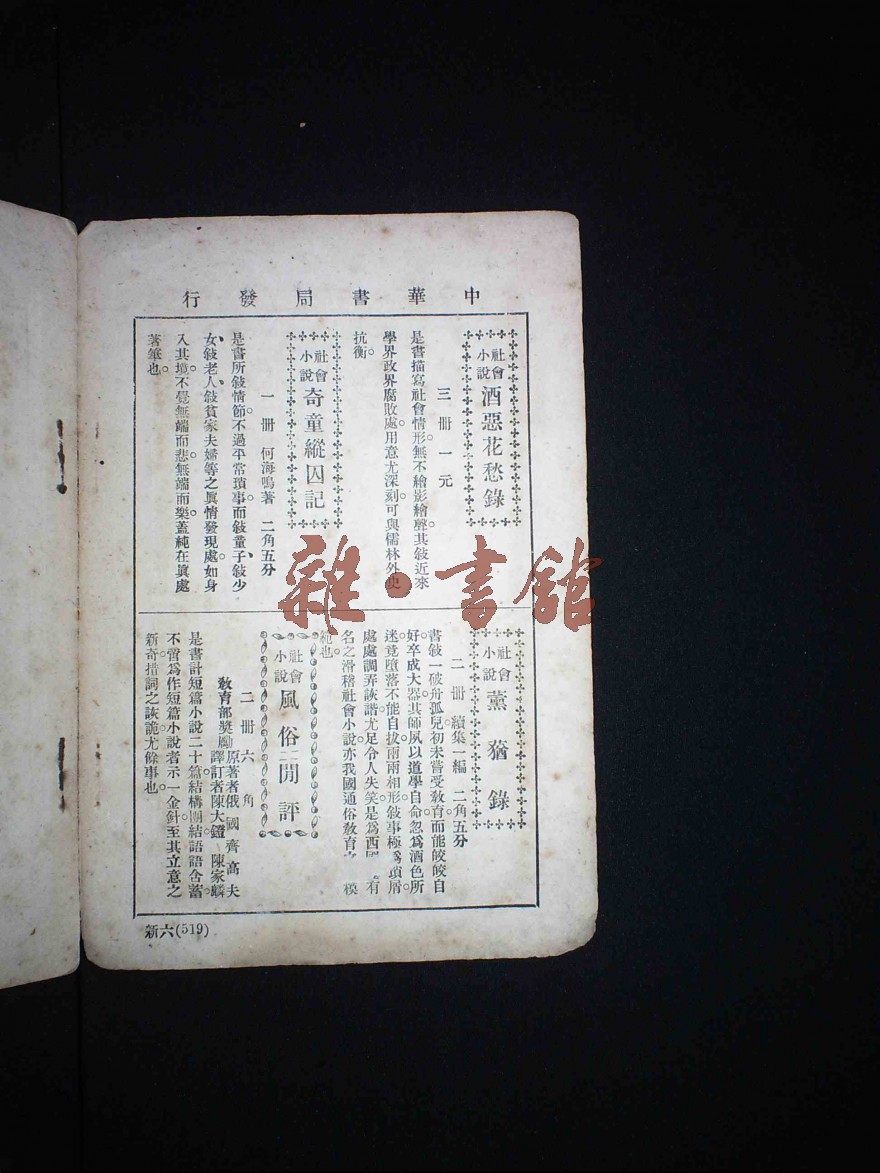 中華書局發行
社會小說 酒惡花愁錄
三冊一元
是書描寫社會情形無不繪影繪聲其敍近來
學界政界腐敗處用意尤深刻可與儒林外史
抗衡
社會小說 奇童縱囚記
一冊 何海鳴著 二角五分
是書所敍情節不過平常瑣事而敍童子敍少
女敍老人敍貧家夫婦等之眞情發現處如身
入其境不覺無端而悲無端而樂蓋純在眞處
著筆也
社會小說 薰蕕錄
二冊 續集一編 二角五分
書敍一破舟孤兒初未嘗受敎育而能皎皎自
好卒成大器其師夙以道學自命忽爲酒色所
迷竟墮落不能自拔兩兩相形敍事極爲瑣屑
處處調弄詼諧尤足令人失笑是爲西國有
名之滑稽社會小說亦我國通俗敎育之模
範也
社會小說 風俗閒評
二冊六角
敎育部獎勵 原著者俄國齊高夫
譯訂者陳大鐙 陳家麟
是書計短篇小說二十篇結構團結語語含蓄
不啻爲作短篇小說者示一金針至其立意之
新奇措詞之詼詭尤餘事也
新六(519)
雜·書館